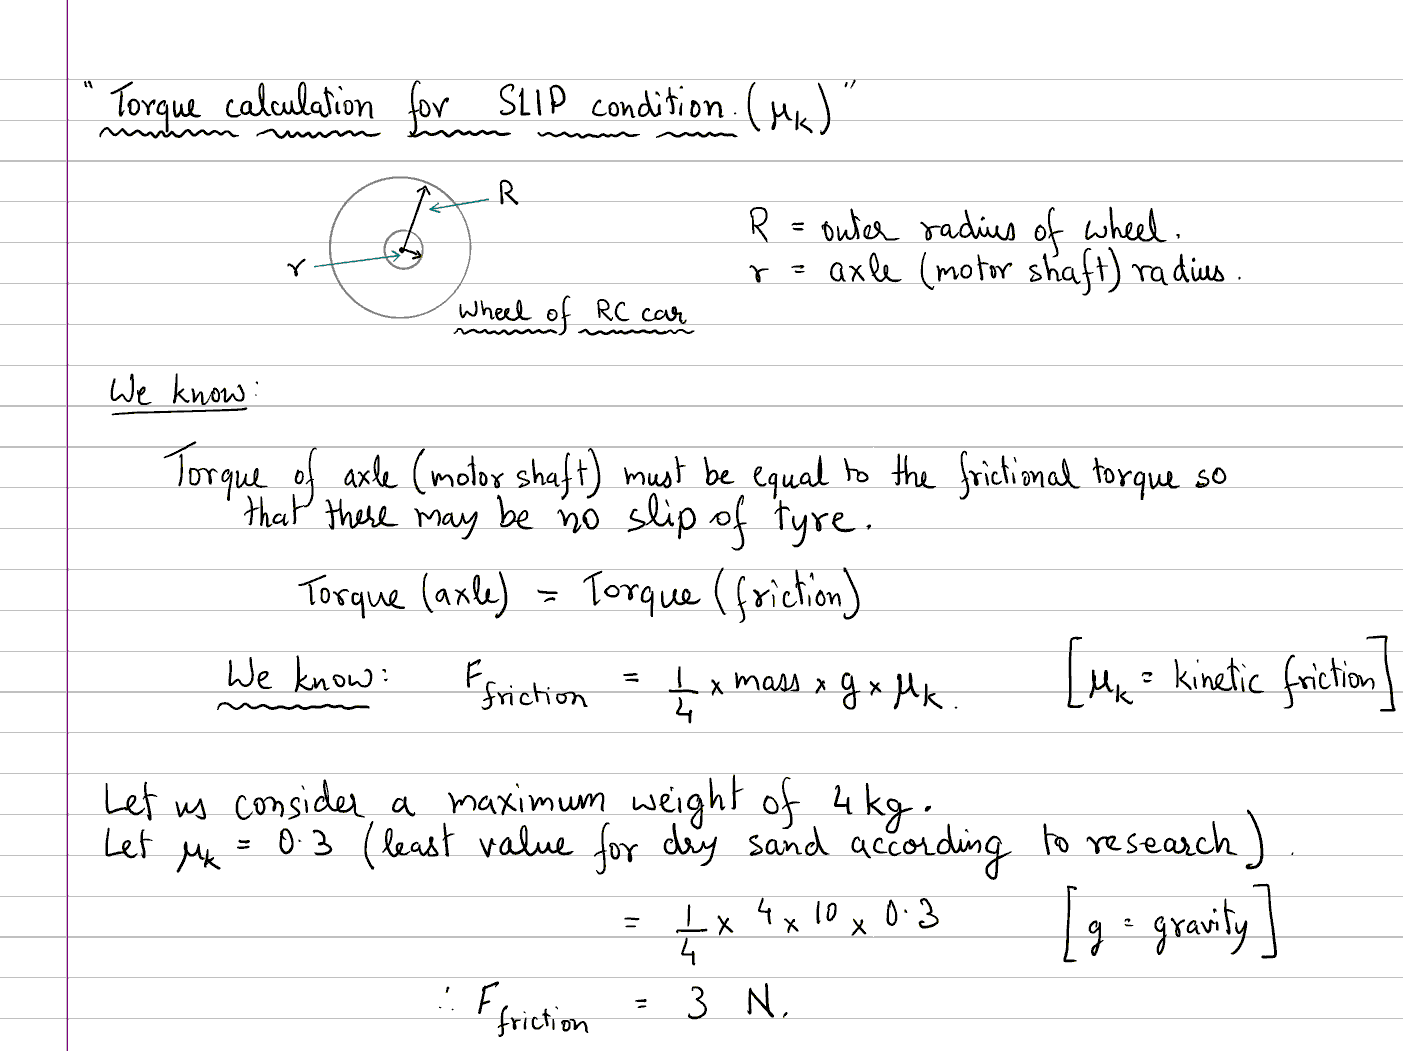 "Torque calculation for SLIP condition. (μk)"
R
r
R = outer radius of wheel.
r = axle (motor shaft) radius.
Wheel of RC car
We know:
Torque of axle (motor shaft) must be equal to the frictional torque so
that there may be no slip of tyre.
Torque (axle) = Torque (friction)
We know: F friction = 1/4 x mass x g x μk. [μk = kinetic friction]
Let us consider a maximum weight of 4 kg.
Let μk = 0.3 (least value for dry sand according to research).
= 1/4 x 4 x 10 x 0.3 [g = gravity]
∴ F friction = 3 N.